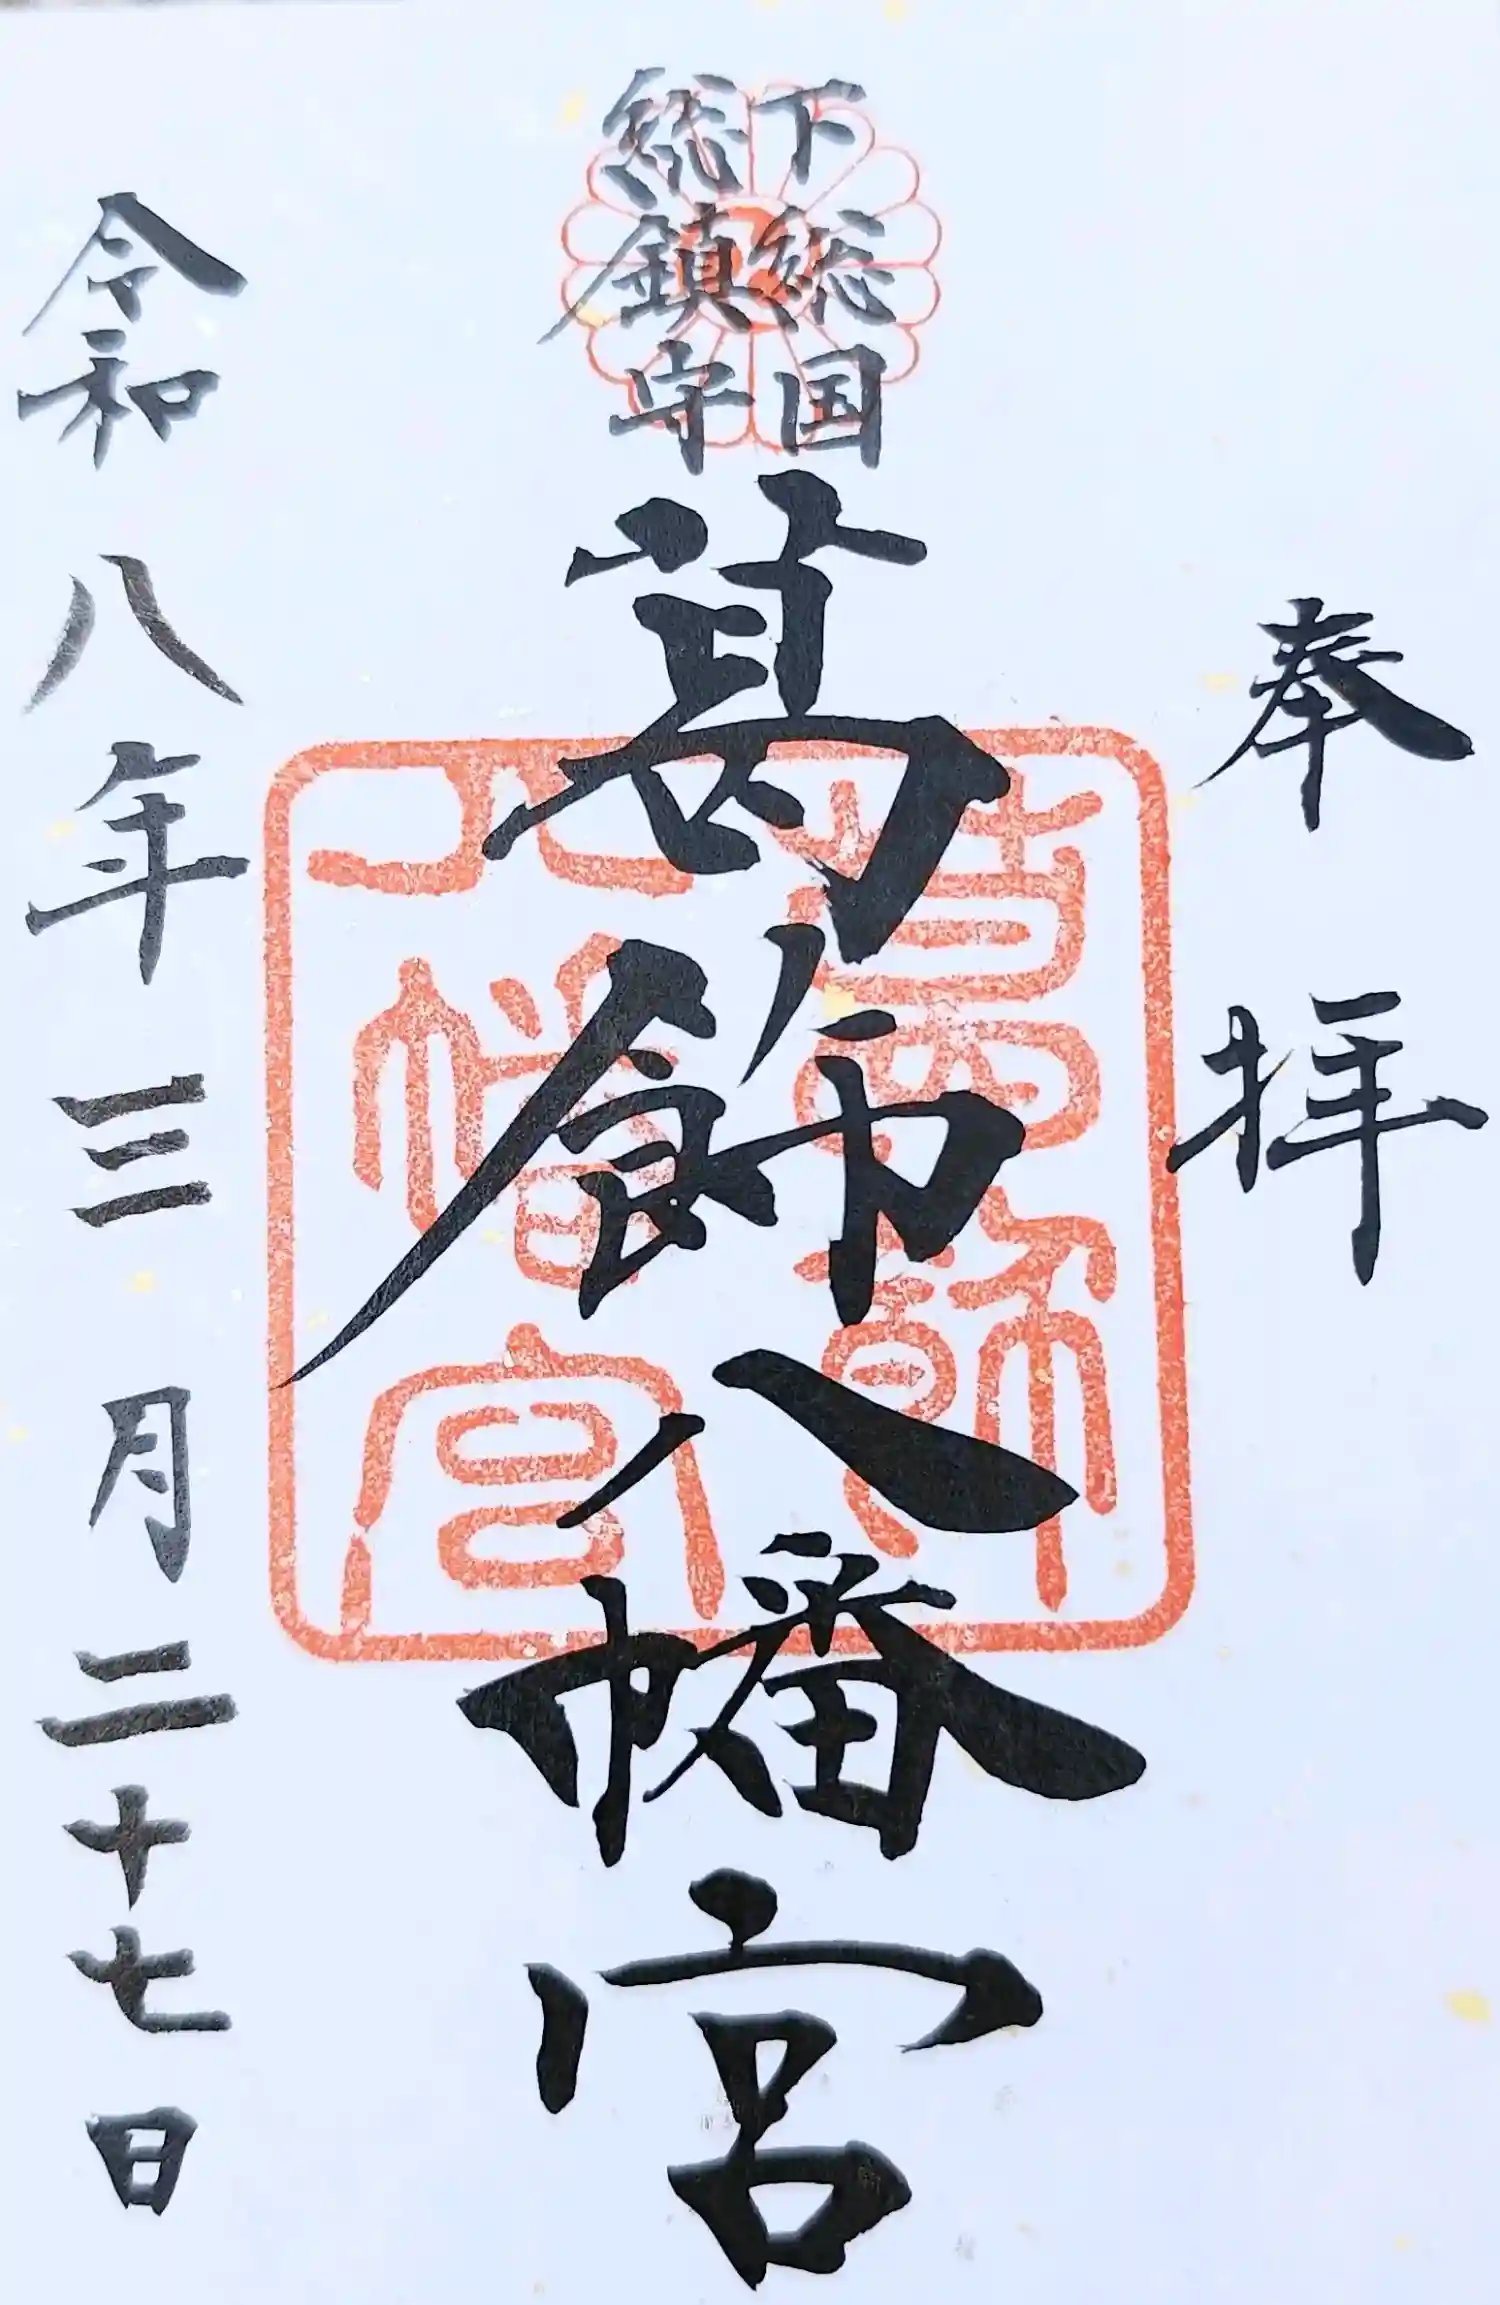 奉拝
下総国
総鎮守
葛飾八幡宮
葛飾
八幡宮
令和八年三月二十七日